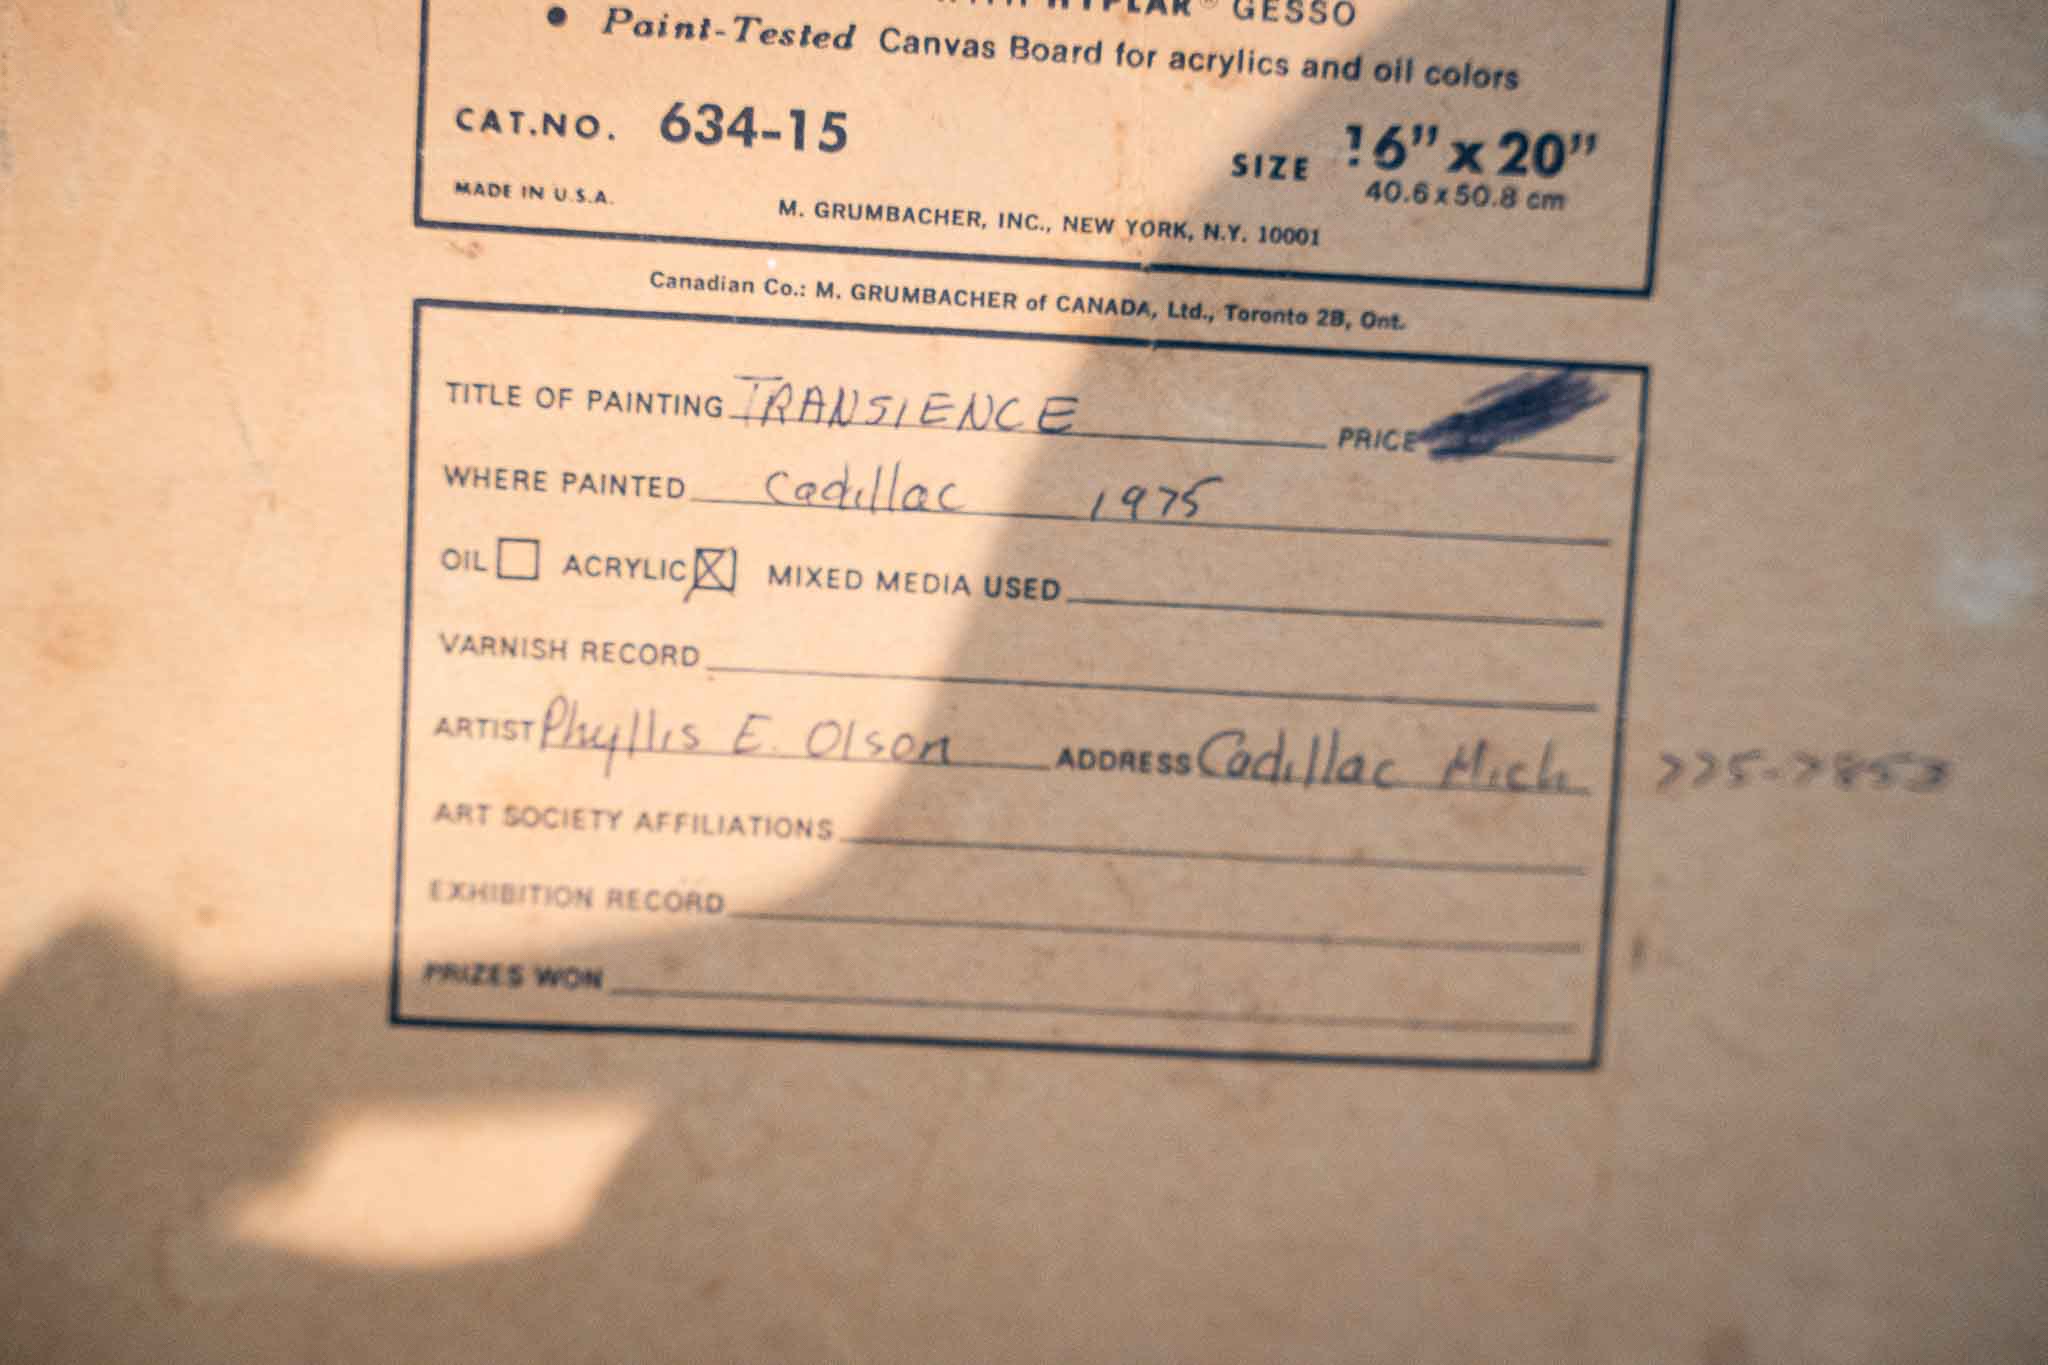 HYPLAR® GESSO
• Paint-Tested Canvas Board for acrylics and oil colors
CAT.NO. 634-15 SIZE 16" x 20"
40.6 x 50.8 cm
MADE IN U.S.A. M. GRUMBACHER, INC., NEW YORK, N.Y. 10001
Canadian Co.: M. GRUMBACHER of CANADA, Ltd., Toronto 2B, Ont.
TITLE OF PAINTING TRANSIENCE PRICE
WHERE PAINTED Cadillac 1975
OIL ACRYLIC MIXED MEDIA USED
VARNISH RECORD
ARTIST Phyllis E. Olson ADDRESS Cadillac Mich
ART SOCIETY AFFILIATIONS
EXHIBITION RECORD
PRIZES WON